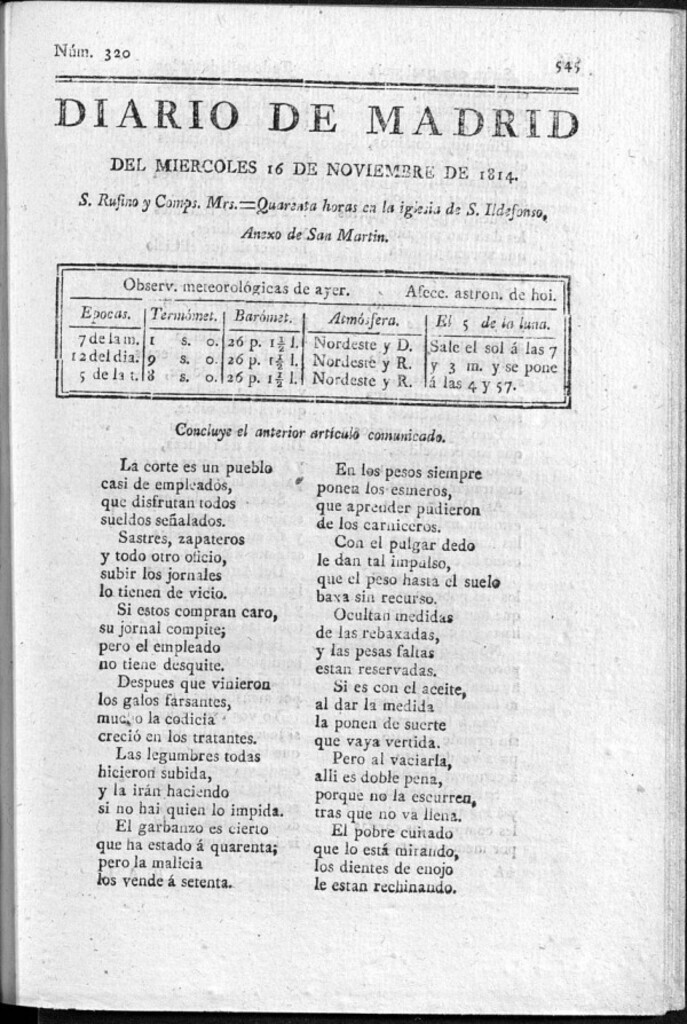 Núm. 320
545
DIARIO DE MADRID
DEL MIERCOLES 16 DE NOVIEMBRE DE 1814.
S. Rufino y Comps. Mrs.=Quarenta horas en la iglesia de S. Ildefonso,
Anexo de San Martin.
Observ. meteorológicas de ayer. Afecc. astron. de hoi.
Epocas. Termómet. Barómet. Atmósfera. El 5 de la luna.
7 de la m. 1 s. o. 26 p. 1½ l. Nordeste y D. Sale el sol á las 7
12 del dia. 9 s. o. 26 p. 1½ l. Nordeste y R. y 3 m. y se pone
5 de la t. 8 s. o. 26 p. 1½ l. Nordeste y R. á las 4 y 57.
Concluye el anterior artículo comunicado.
La corte es un pueblo
casi de empleados,
que disfrutan todos
sueldos señalados.
Sastres, zapateros
y todo otro oficio,
subir los jornales
lo tienen de vicio.
Si estos compran caro,
su jornal compite;
pero el empleado
no tiene desquite.
Despues que vinieron
los galos farsantes,
mucho la codicia
creció en los tratantes.
Las legumbres todas
hicieron subida,
y la irán haciendo
si no hai quien lo impida.
El garbanzo es cierto
que ha estado á quarenta;
pero la malicia
los vende á setenta.
En los pesos siempre
ponen los esmeros,
que aprender pudieron
de los carniceros.
Con el pulgar dedo
le dan tal impulso,
que el peso hasta el suelo
baxa sin recurso.
Ocultan medidas
de las rebaxadas,
y las pesas faltas
estan reservadas.
Si es con el aceite,
al dar la medida
la ponen de suerte
que vaya vertida.
Pero al vaciarla,
alli es doble pena,
porque no la escurren,
tras que no va llena.
El pobre cuitado
que lo está mirando,
los dientes de enojo
le estan rechinando.